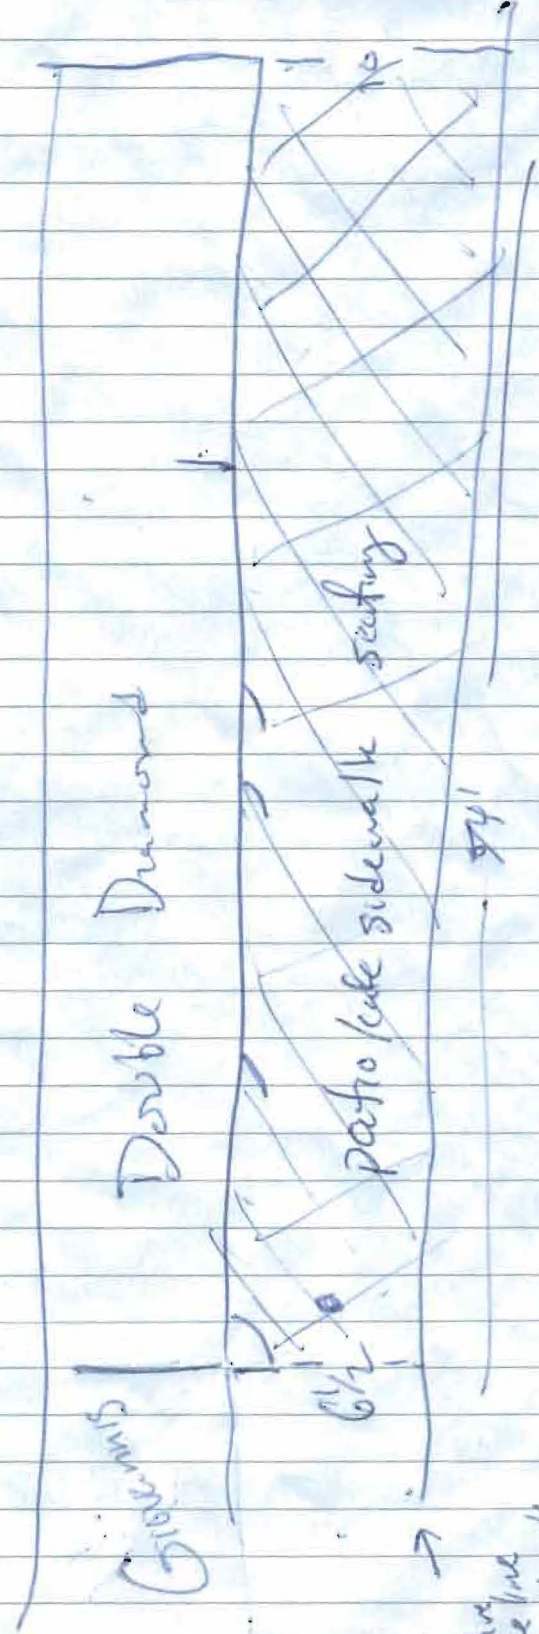 Giovannis
Double Diamond
6 1/2
patio/cafe sidewalk seating
10
74'
line